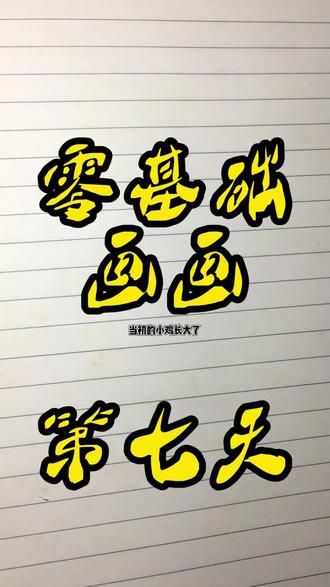 零基础
画画
当初的小鸡长大了
第七天